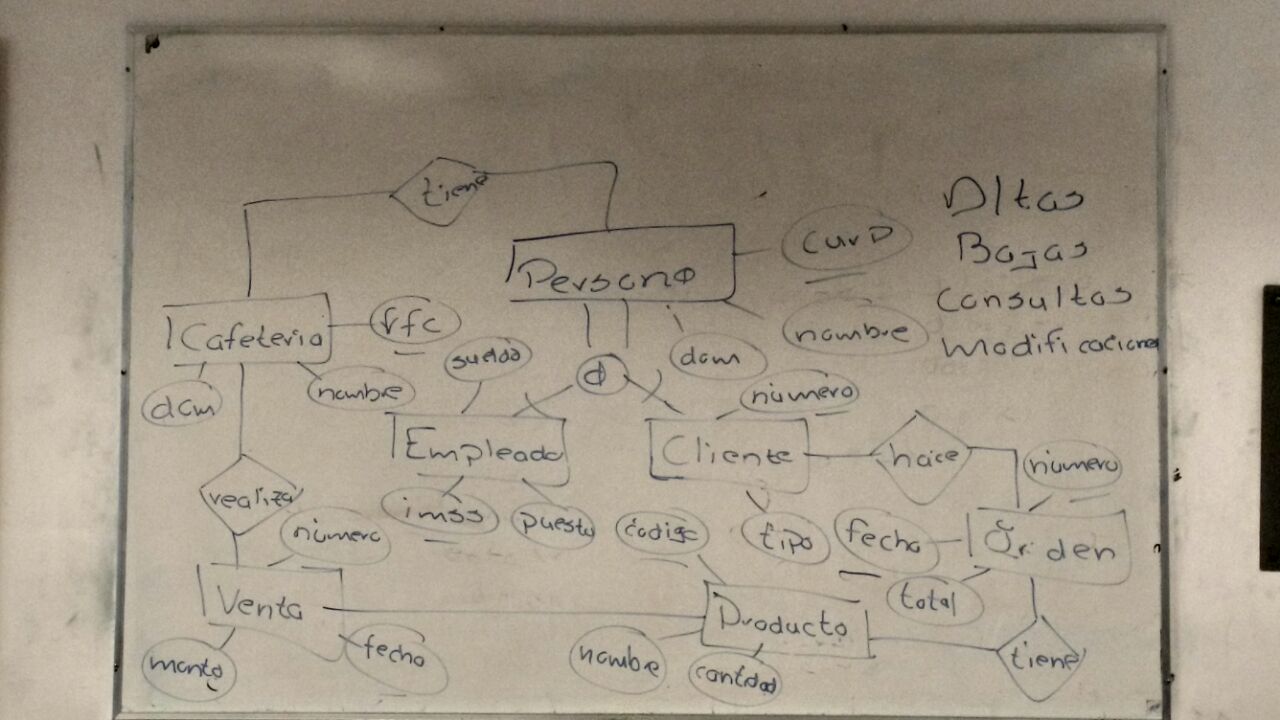 tiene
Persona
curp
nombre
dom
Altas
Bajas
Consultas
Modificaciones
Cafeteria
rfc
dom
nombre
d
sueldo
Empleado
imss
puesto
número
Cliente
tipo
hace
número
Orden
fecha
total
tiene
realiza
número
Venta
monto
fecha
código
Producto
nombre
cantidad